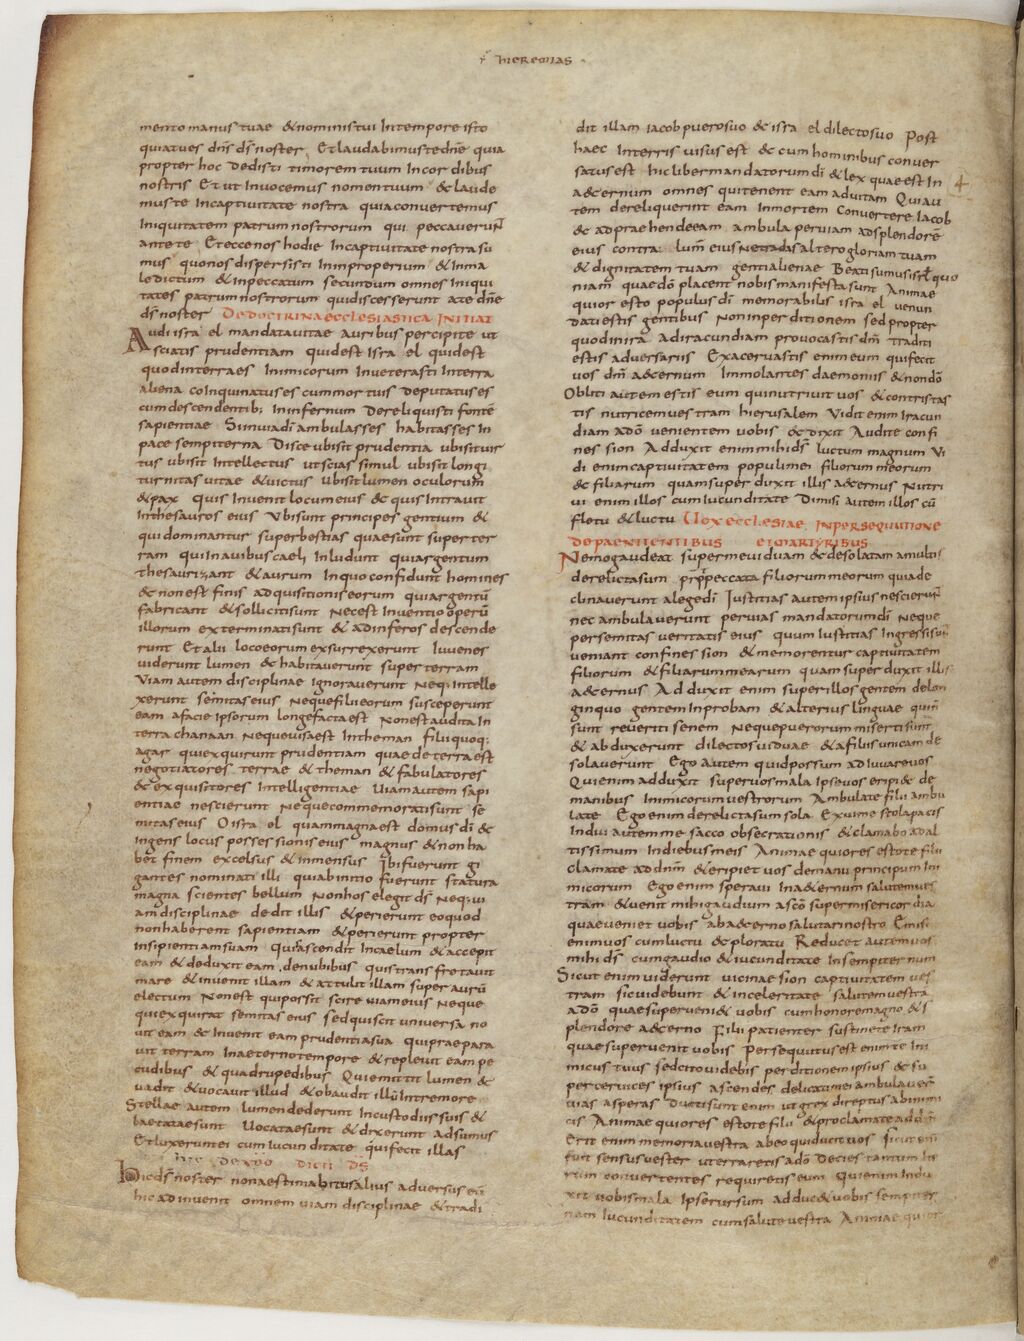 r hieremias
mento manus tuae & nominis tui Intempore isto
quia tu es dns ds noster. Et laudabimus te dne quia
propter hoc dedisti timorem tuum In cordibus
nostris Et ut Invocemus nomen tuum & laude
mus te Incaptivitate nostra quia convertemus
Iniquitatem patrum nostrorum qui peccaverunt
ante te Et ecce nos hodie Incaptivitate nostra su
mus quo nos dispersisti In Inproperium & Inma
ledictum & Inpeccatum secundum omnes Iniqui
tates patrum nostrorum qui discesserunt ate dne
ds noster De doctrina ecclesiastica initiat
Audi isra el mandata vitae auribus percipite ut
sciatis prudentiam quid est Isra el quid est
quod interra es Inimicorum Inveterasti Interra
aliena coInquinatus es cum mortuis deputatus es
cum descendentib; In Infernum Dereliquisti fonte
sapientiae Si in via di ambulasses habitasses In
pace sempiterna Disce ubi sit prudentia ubi sit uir
tus ubi sit Intellectus ut scias simul ubi sit longi
turnitas vitae & victus Ubi sit lumen oculorum
& pax Quis Invenit locum eius & quis Intravit
Inthesauros eius Ubi sunt principes gentium &
qui dominantur super bestias quae sunt super ter
ram qui In avibus caeli Inludunt qui argentum
thesaurizant & aurum In quo confidunt homines
& non est finis adquisitionis eorum qui argentu
fabricant & solliciti sunt Nec est Inventio operu
illorum exterminati sunt & ad inferos descende
runt Et alii loco eorum exsurrexerunt Iuvenes
viderunt lumen & habitaverunt super terram
Viam autem disciplinae ignoraverunt Neq; Intelle
xerunt semitas eius Neque filii eorum susceperunt
eam a facie Ipsorum longe facta est Non est audita In
terra chanaan Neque visa est In theman filii quoq;
agar qui exquirunt prudentiam quae de terra est
negotiatores terrae & theman & fabulatores
& exquisitores Intelligentiae Viam autem sapi
entiae nescierunt Neque commemorati sunt se
mitas eius O isra el quam magna est domus di &
ingens locus possessionis eius magnus & non ha
bet finem excelsus & inmensus Ibi fuerunt gi
gantes nominati illi qui ab initio fuerunt statura
magna scientes bellum Non hos elegit ds Neq; vi
am disciplinae dedit illis & perierunt eo quod
non haberent sapientiam & perierunt propter
insipientiam suam Quis ascendit Incaelum & accepit
eam & deduxit eam de nubibus quis transfretavit
mare & invenit illam & attulit illam super auru
electum Non est qui possit scire viam eius Neque
qui exquirat semitas eius sed qui scit universa no
vit eam & Invenit eam prudentia sua qui praepara
vit terram Inaeterno tempore & replevit eam pe
cudibus & quadrupedibus Qui emittit lumen &
vadit & vocavit illud & obaudit illi In tremore
Stellae autem lumen dederunt Incustodiis suis &
laetatae sunt Vocatae sunt & dixerunt adsumus
Et luxerunt ei cum Iucunditate qui fecit illas
hic de xpo dicit ds
Hic ds noster non aestimabitur alius adversus eu
hic adinvenit omnem viam disciplinae & tradi
dit illam Iacob puero suo & isra el dilecto suo Post
haec Interris visus est & cum hominibus conver
satus est hic liber mandatorum di & lex quae est In
4
aeternum omnes qui tenent eam ad vitam Qui au
tem dereliquerunt eam Inmortem Convertere Iacob
& adpraehende eam ambula per viam ad splendore
eius contra lum eius Ne tradas altero gloriam tuam
& dignitatem tuam gentialienae Beati sumus isrl quo
niam quae do placent nobis manifesta sunt Animae
quior esto populus di memorabilis isra el venun
dati estis gentibus Non In perditionem sed propter
quod in ira Ad iracundiam provocastis dm traditi
estis adversariis Exacervastis enim eum qui fecit
vos dm aeternum Immolantes daemoniis & non do
Obliti autem estis eum qui nutrivit vos & contristas
tis nutricem vestram hierusalem Vidit enim Iracun
diam a do venientem vobis & dixit Audite confi
nes sion Adduxit enim mihi ds luctum magnum Vi
di enim captivitatem populi mei filiorum meorum
& filiarum quam super duxit illis aeternus Nutri
vi enim illos cum Iucunditate Dimisi autem illos cu
fletu & luctu Vox ecclesiae in persequutione
de paenitentibus et martyribus
Nemo gaudeat super me viduam & desolatam a multis
derelicta sum propter peccata filiorum meorum quia de
clinaverunt a lege di Iustitias autem ipsius nescierunt
nec ambulaverunt per vias mandatorum di Neque
per semitas veritatis eius quum Iustitias Ingressi sunt
veniant confines sion & memorentur captivitatem
filiorum & filiarum mearum quam super duxit illis
aeternus Adduxit enim super illos gentem de lon
ginquo gentem Inprobam & alterius linguae qui n
sunt reveriti senem Neque puerorum miserti sunt
& abduxerunt dilectos viduae & a filiis unicam de
solaverunt Ego autem quid possum adiuvare vos
Qui enim adduxit super vos mala Ipse vos eripi& de
manibus Inimicorum vestrorum Ambulate filii ambu
late Ego enim derelicta sum sola Exui me stola pacis
Indui autem me sacco obsecrationis & clamabo ad al
tissimum In diebus meis Animaequiores estote filii
clamate ad dnm & eripiet vos de manu principum Ini
micorum Ego enim speravi In aeternum salutem ves
tram & venit mihi gaudium a sco super misericordia
quae veniet vobis ab aeterno salutari nostro Emisi
enim vos cum luctu & ploratu Reducet autem vos
mihi ds cum gaudio & iucunditate In sempiternum
Sicut enim viderunt vicinae sion captivitatem ves
tram sic videbunt & in celeritate salutem vestra
a do quae superveni& vobis cum honore magno & s
plendore aeterno Filii patienter sustinete Iram
quae supervenit vobis Persequutus est enim te Ini
micus tuus sed cito videbis perditionem ipsius & su
per cervices ipsius ascendes delicati mei ambulaver
vias asperas Ducti sunt enim ut grex direptus ab inimi
cis Animaequiores estote filii & proclamate ad dnm
Erit enim memoria vestra ab eo qui ducit vos sicut eni
fuit sensus vester ut erraretis a do Decies tantum Ite
rum convertentes requiretis eum Qui enim Indu
xit vobis mala Ipse rursum adduc& vobis sempiter
nam Iucunditatem cum salute vestra Animaequior